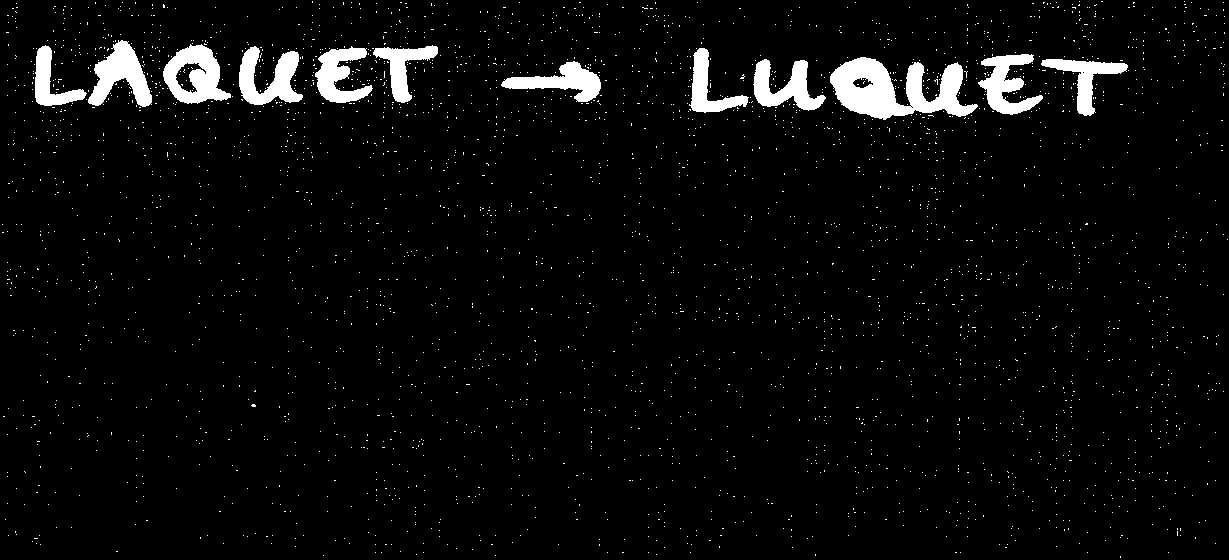 LAQUET → LUQUET